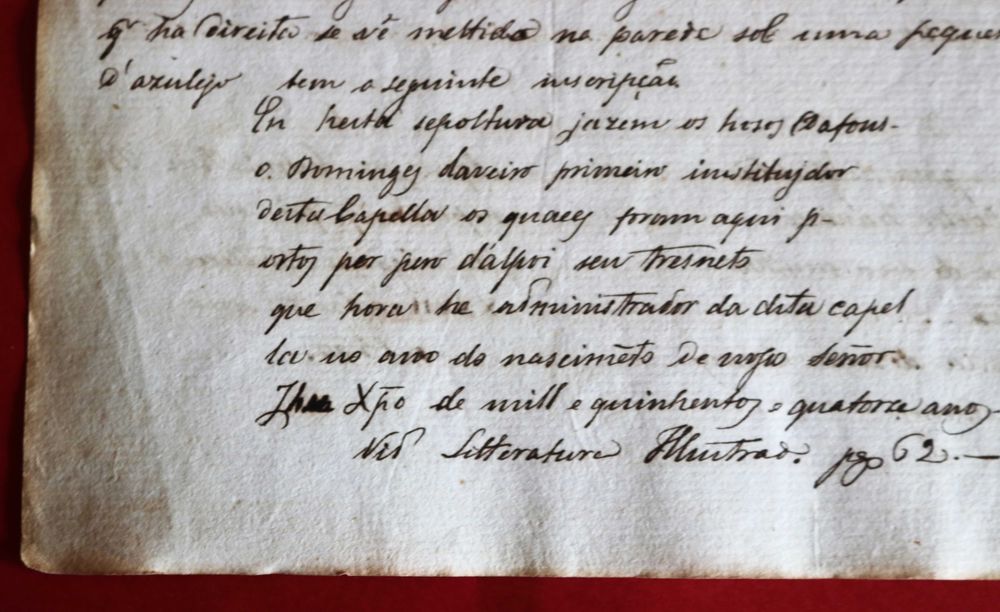 q̃ ha direita se vê mettida na parede sob uma peque
d'azulejo tem a seguinte inscripção
En hesta sepoltura jazem os hosos Dafons-
o. Domingeˢ daveiro primeiro institujdor
desta Capella os quaes foram aqui p-
ostos per pero d'alpoi seu tresneto
que hora he administrador da dita capel
la no ano do nascimẽto de nosso señor
Jhu Xp̃o de mill e quinhentos e quatorze anos
Vid Litteratura Illustrad. pg 62.—